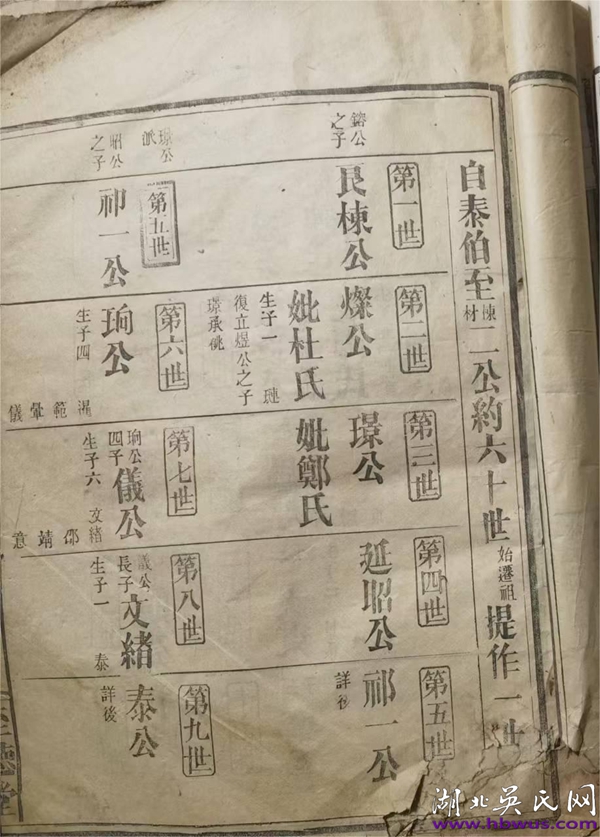 自泰伯至棟材二公約六十世始遷祖提作一世
鎔公之子
第一世
良棟公
第二世
燦公
妣杜氏
生子一 璉
復立煜公之子
璟承祧
第三世
璟公
妣鄭氏
第四世
延昭公
第五世
祁一公
詳後
璟公派
昭公之子
第五世
祁一公
第六世
珦公
生子四
範 暈 儀
第七世
珦公四子
儀公
生子六 文緒
靖 意
第八世
儀公長子
文緒
生子一 泰
第九世
泰公
詳後
德堂
湖北吳氏网
www.hbwus.com